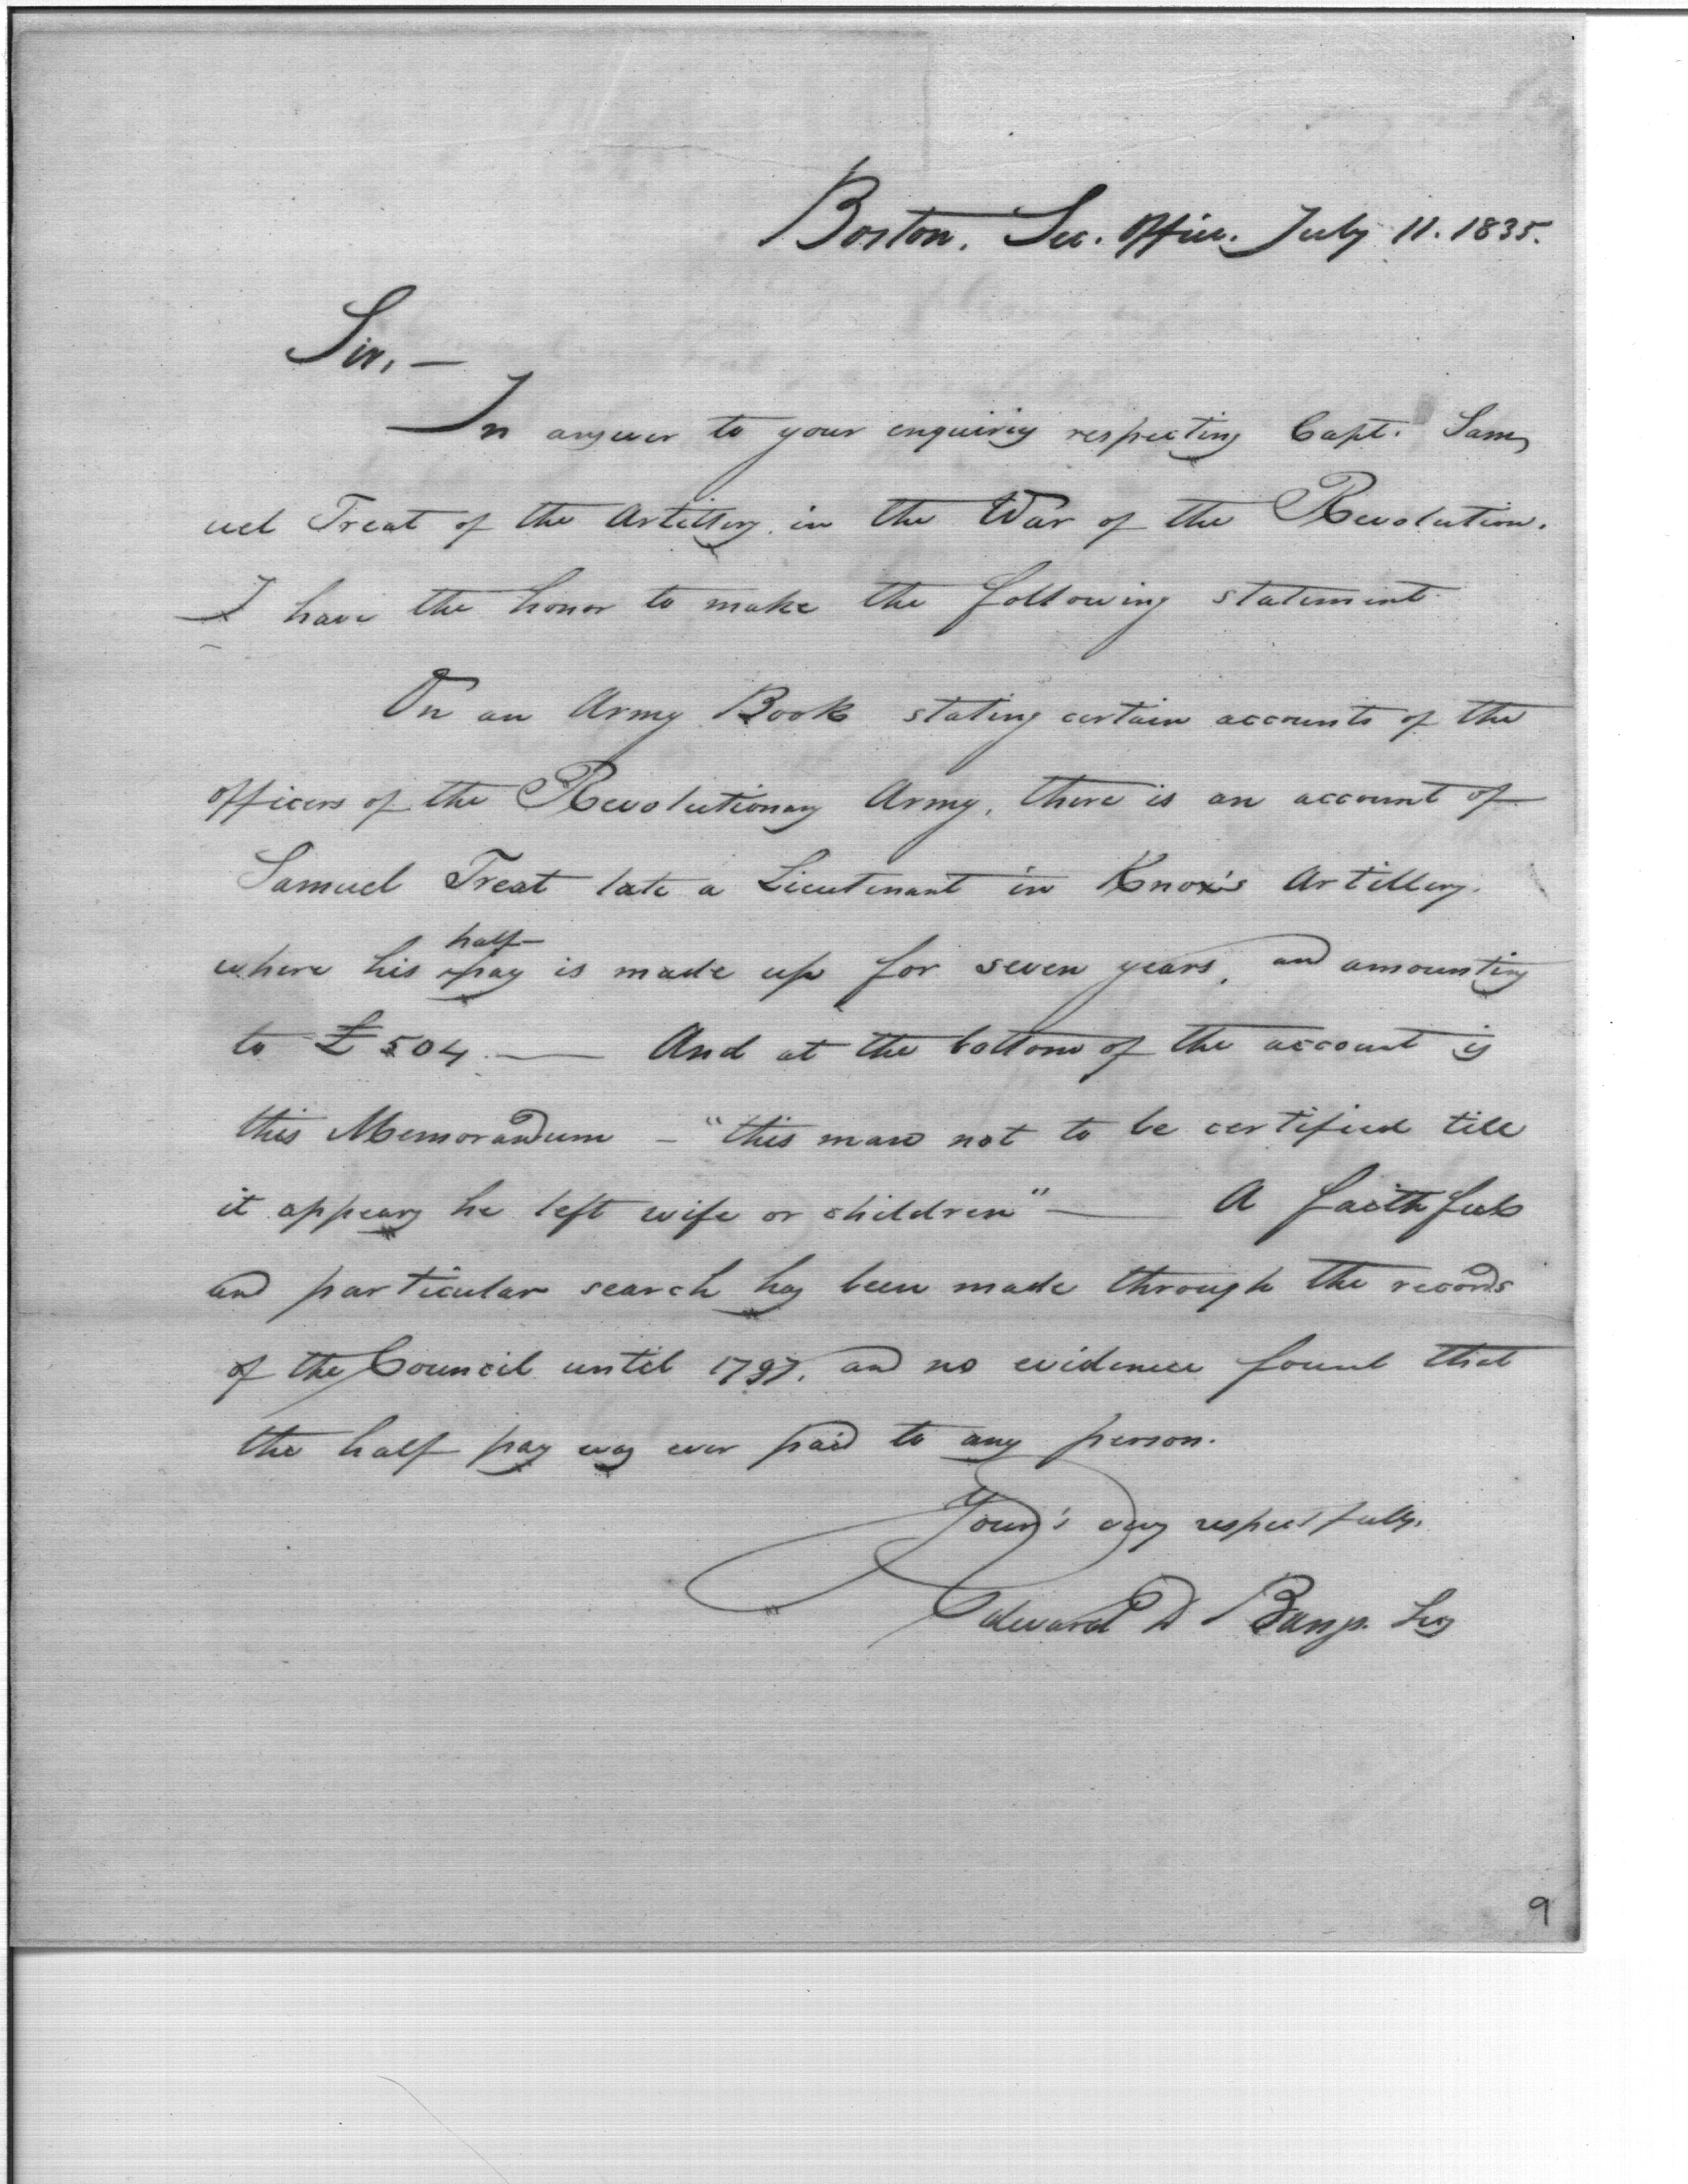 Boston. Sec. Office. July 11. 1835.
Sir, —
In answer to your enquiries respecting Capt. Sam,
uel Treat of the Artillery in the War of the Revolution.
I have the honor to make the following statement.
On an Army Book stating certain accounts of the
officers of the Revolutionary Army, there is an account of
Samuel Treat late a Lieutenant in Knox's Artillery.
half
where his pay is made up for seven years, and amounting
to £504. — And at the bottom of the account is
this Memorandum — "this man not to be certified till
it appears he left wife or children" — A faithful
and particular search has been made through the records
of the Council until 1797, and no evidence found that
the half pay was ever paid to any person.
Your's very respectfully.
Edward D Bangs. Secy
9